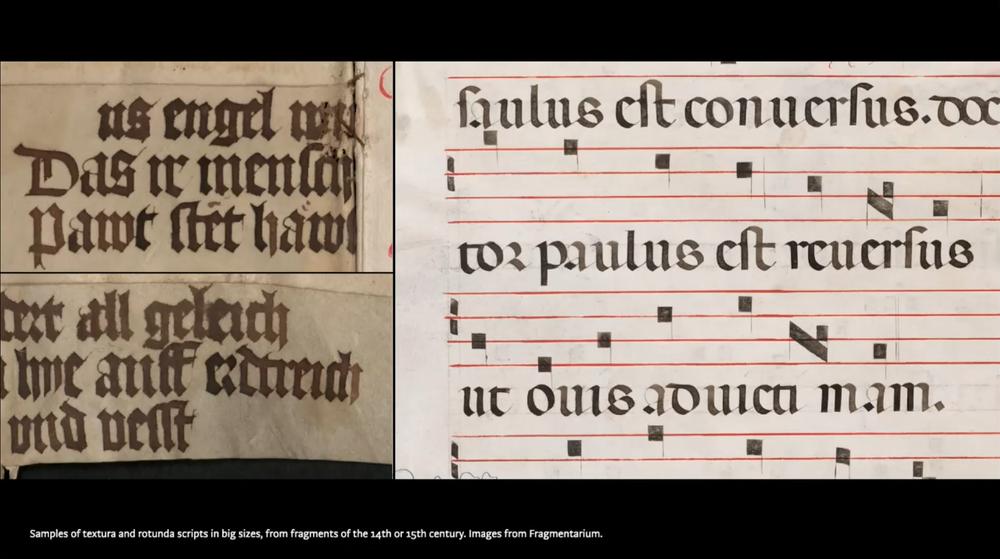 us engel
Das ir mensch
Pawt stet haw
dert all geleich
hye auff erdtreich
vnd vesst
saulus est conuersus. doc
tor paulus est reuersus
ut ouis ad uicti mam.
Samples of textura and rotunda scripts in big sizes, from fragments of the 14th or 15th century. Images from Fragmentarium.